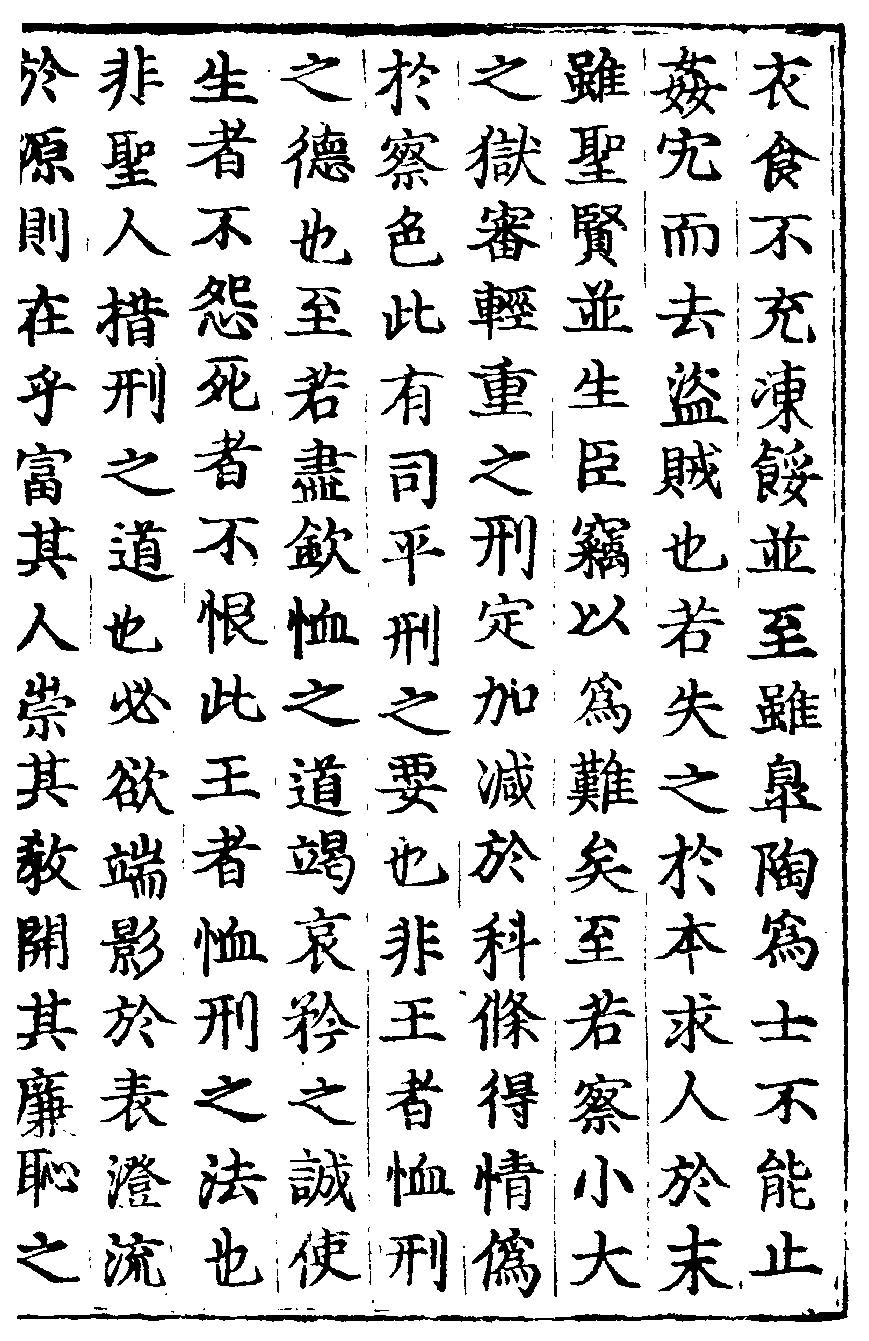 衣食不充凍餒並至雖臯陶爲士不能止
姦宄而去盜賊也若失之於本求人於末
雖聖賢並生臣竊以爲難矣至若察小大
之獄審輕重之刑定加减於科條得情僞
於察色此有司平刑之要也非王者恤刑
之德也至若盡欽恤之道竭哀矜之誠使
生者不怨死者不恨此王者恤刑之法也
非聖人措刑之道也必欲端影於表澄流
於源則在乎富其人崇其教開其廉恥之